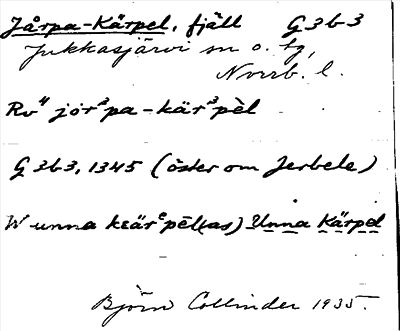 Jårpa-Kärpel, fjäll G3b3
Jukkasjärvi sn o. tg,
Norrb. l.
Rv" jor²pa-kär³pèl
G3b3, 1345 (öster om Jerbele)
W unna kɛärᵉpēl(as) Unna Kärpel
Björn Collinder 1935.